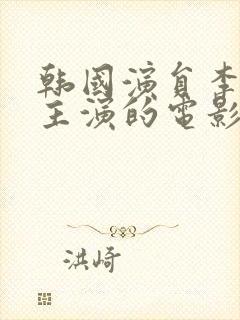 韩國演員李
主演的電影
洪崎